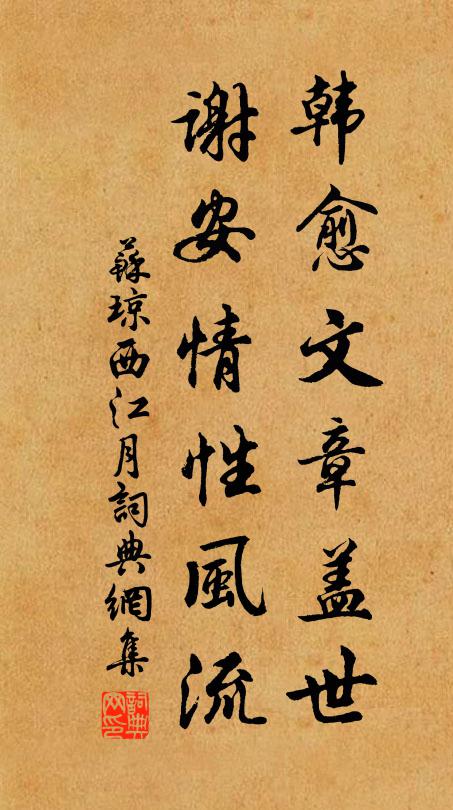 韩愈文章盖世
谢安情性風流
蘇琼西江月詞典網集
詞典網印